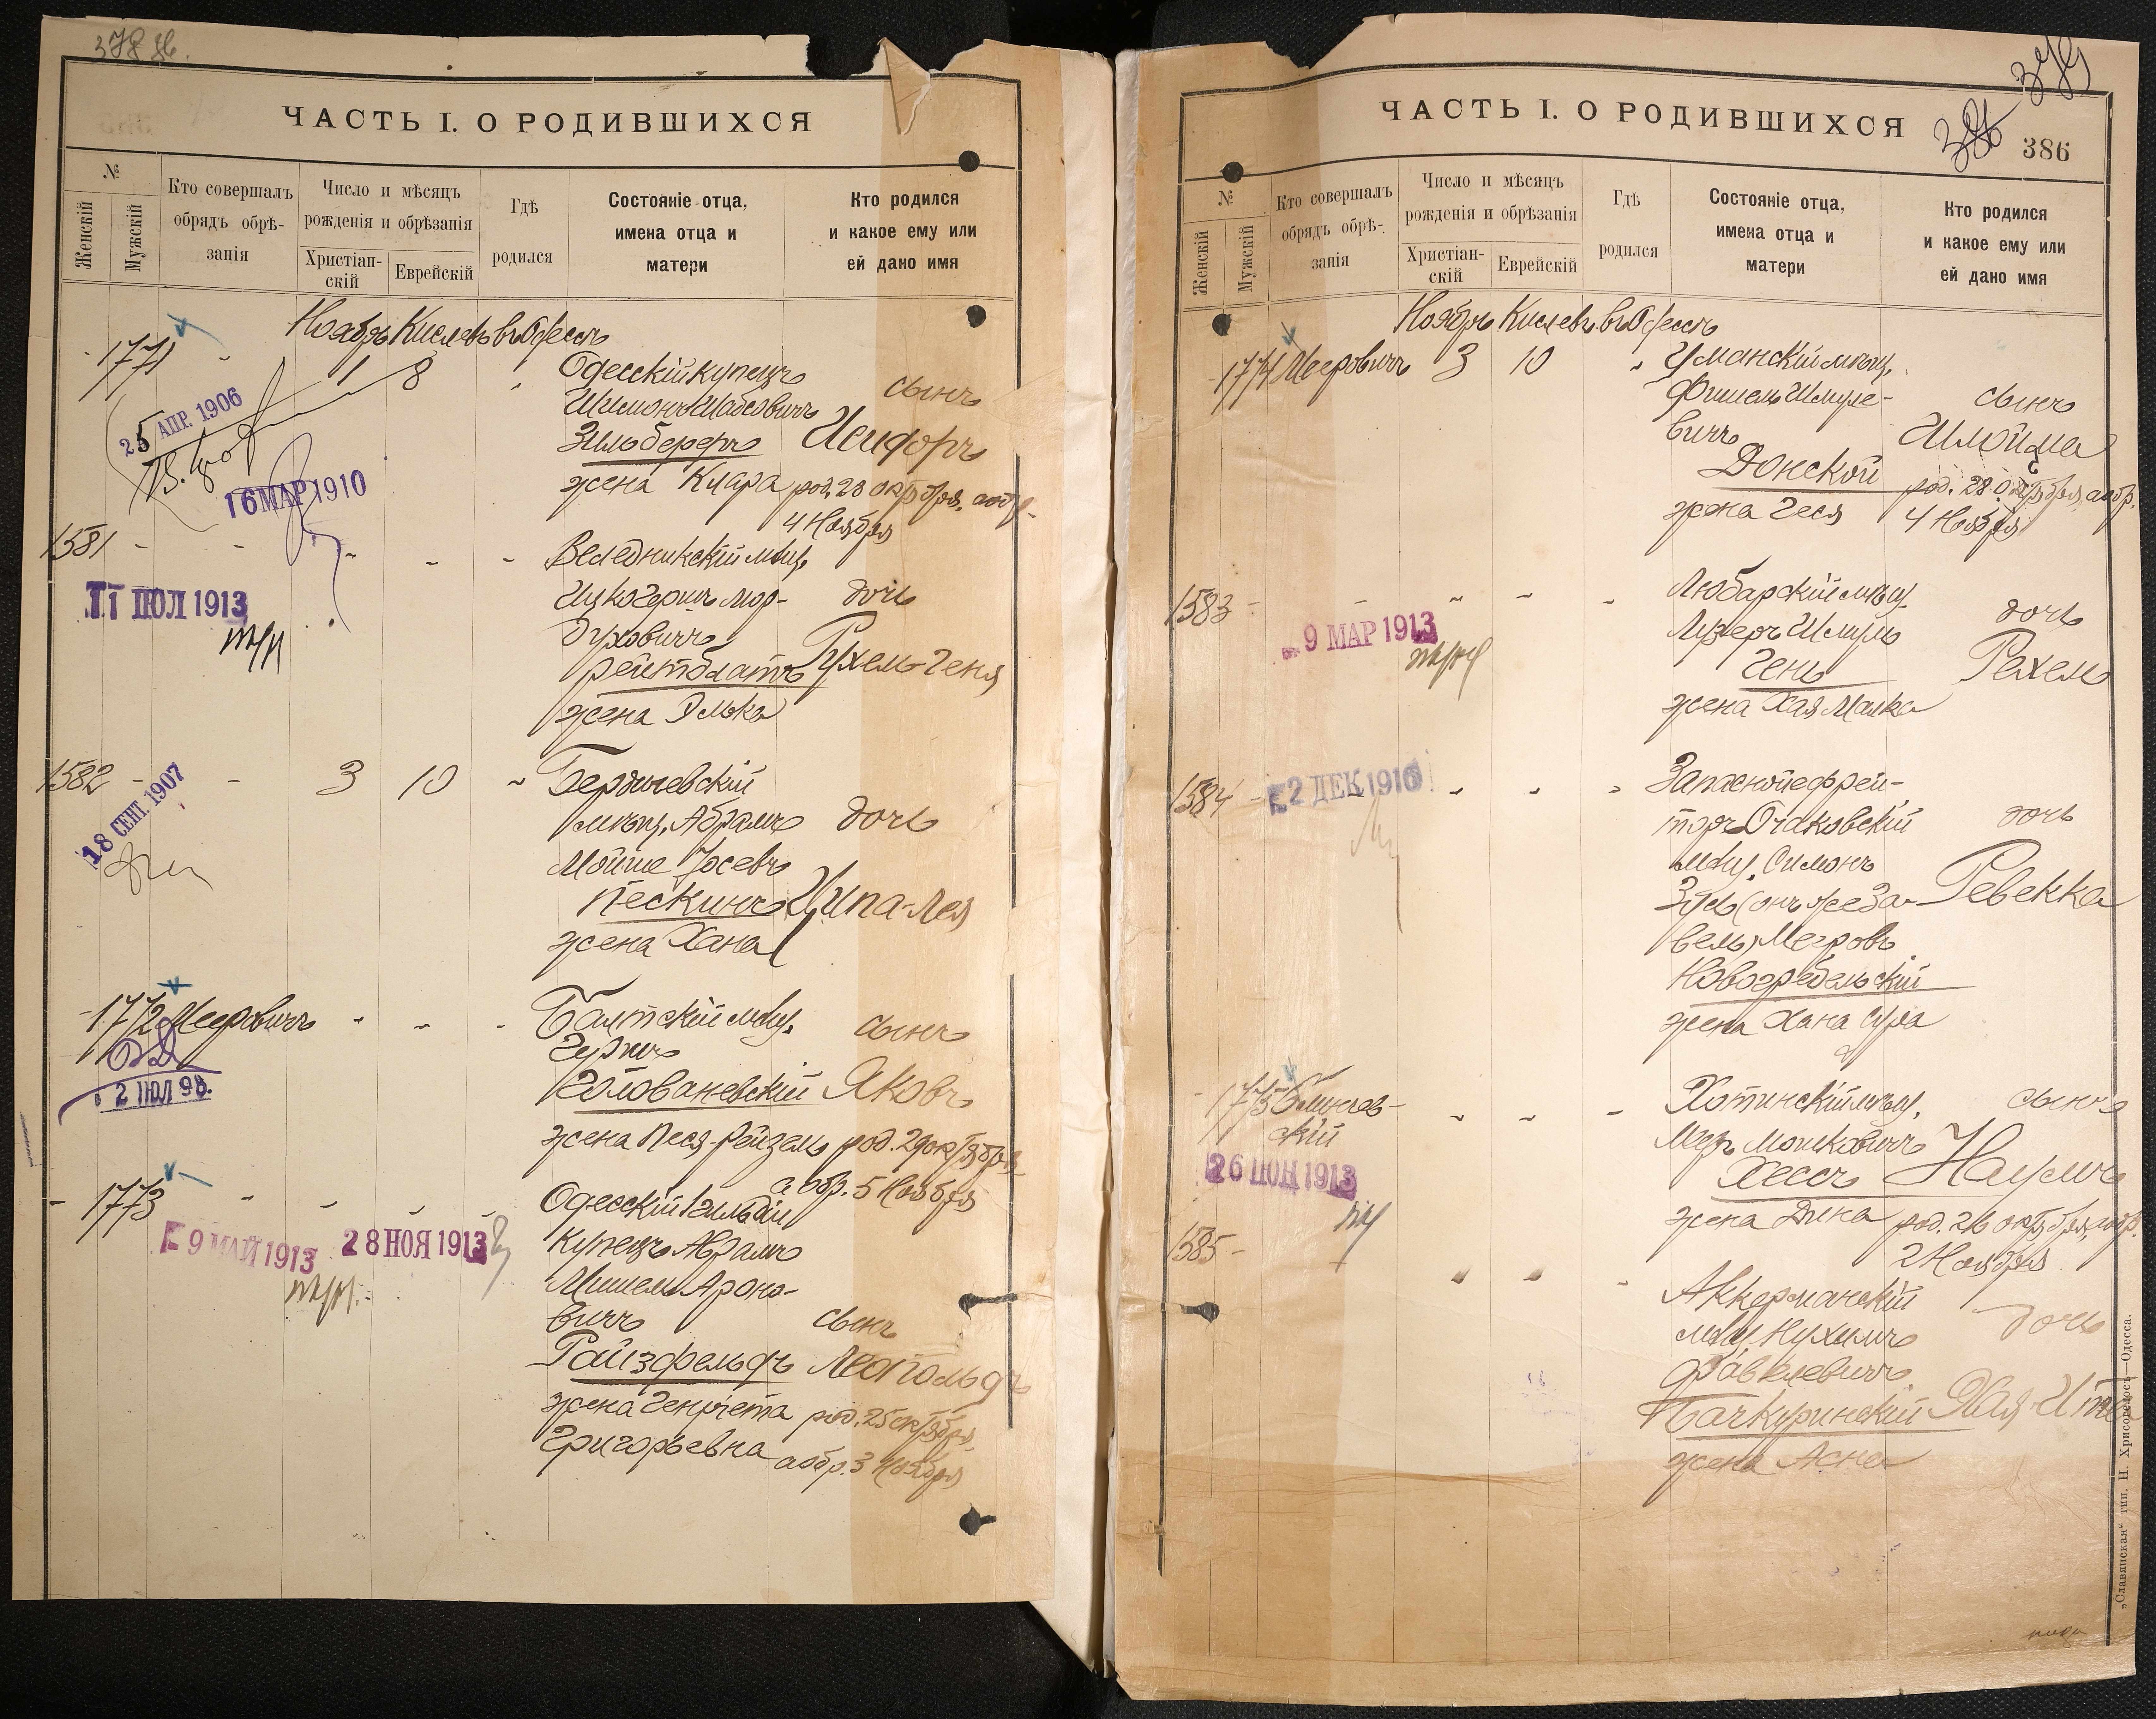 378 об.
ЧАСТЬ I. О РОДИВШИХСЯ
№
Женскій
Мужскій
Кто совершалъ
обрядъ обрѣ-
занія
Число и мѣсяцъ
рожденія и обрѣзанія
Христіан-
скій
Еврейскій
Гдѣ
родился
Состояніе отца,
имена отца и
матери
Кто родился
и какое ему или
ей дано имя
Ноябрь Кислевъ въ Одессѣ
1771 - 1 8 Одесскій купецъ
сынъ
Шимонъ Шабсовичъ
Зильберфъ Исидоръ
жена Клара род. 28 октября, а обр.
4 Ноября
25 АПР. 1906
16 МАР 1910
1581 - - - - - Веледникскій мѣщ.
Ицко Гершъ Мор- дочь
духовичъ
Рейтблатъ Рухель-Геня
жена Элька
11 ІЮЛ 1913
1582 - - 3 10 - Бердичевскій
мѣщ. Абрамъ дочь
Мойше Іосевъ
Пескинъ Ципа-Лея
жена Хана
18 СЕНТ. 1907
1772 Мееровичъ - - - Балтскій мѣщ. сынъ
Гершъ
Голованевскій Яковъ
жена Песя-Рейзель род. 29 октября
а обр. 5 Ноября
2 ІЮЛ 98.
- 1773 - - - - Одесскій 1 гильдіи
купецъ Абрамъ
Мишель Ароно-
вичъ сынъ
Райзфельдъ Леопольдъ
жена Генріета род. 25 октября,
Григорьевна а обр. 3 Ноября
9 МАЙ 1913
28 НОЯ 1913
379
386
ЧАСТЬ I. О РОДИВШИХСЯ
№
Женскій
Мужскій
Кто совершалъ
обрядъ обрѣ-
занія
Число и мѣсяцъ
рожденія и обрѣзанія
Христіан-
скій
Еврейскій
Гдѣ
родился
Состояніе отца,
имена отца и
матери
Кто родился
и какое ему или
ей дано имя
Ноябрь Кислевъ въ Одессѣ
1774 Мееровичъ 3 10 " Уманскій мѣщ.
Фишель Шмуле- сынъ
вичъ Шлойма
Донской род. 28 Октября, а обр.
жена Геся 4 Ноября
1583 - - - - - Любарскій мѣщ. дочь
Лузеръ Шмуль
Гень Рехель
жена Хая Малка
9 МАР 1913
1584 - - - - Запасной ефрей-
торъ Очаковскій дочь
мѣщ. Симонъ
Зусь (онъ же За- Ревекка
вель) Мееровъ
Новогребельскій
жена Хана Сура
2 ДЕК 1916
1775 Блинчев- - - - Хотинскій мѣщ. сынъ
скій
Меръ Мошковичъ
Хессъ Наумъ
жена Дина род. 26 октября, а обр.
2 Ноября
26 ІЮН 1913
1585 - " " - Аккерманскій
мѣщ. Нухимъ дочь
Файвелевичъ
Бачкуринскій Хая-Ита
жена Асна
„Славянская" тип. Н. Хрисогелосъ—Одесса.